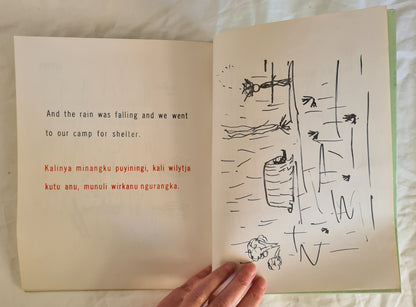 And the rain was falling and we went
to our camp for shelter.
Kalinya minangku puyiningi, kali wilytja
kutu anu, munuli wirkanu ngurangka.